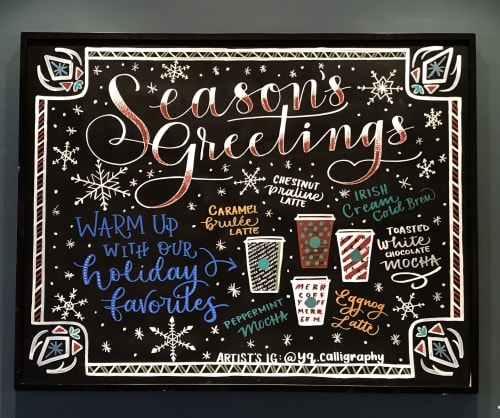 Season's
Greetings
CHESTNUT
praline
LATTE
IRISH
Cream
Cold Brew
CARAMEL
brulée
LATTE
WARM UP
WITH OUR
holiday
favorites
TOASTED
White
CHOCOLATE
MOCHA
PEPPERMINT
MOCHA
MERR
COFF
Y
MERR
EE M
Eggnog
Latte
ARTIST'S IG: @yq.calligraphy